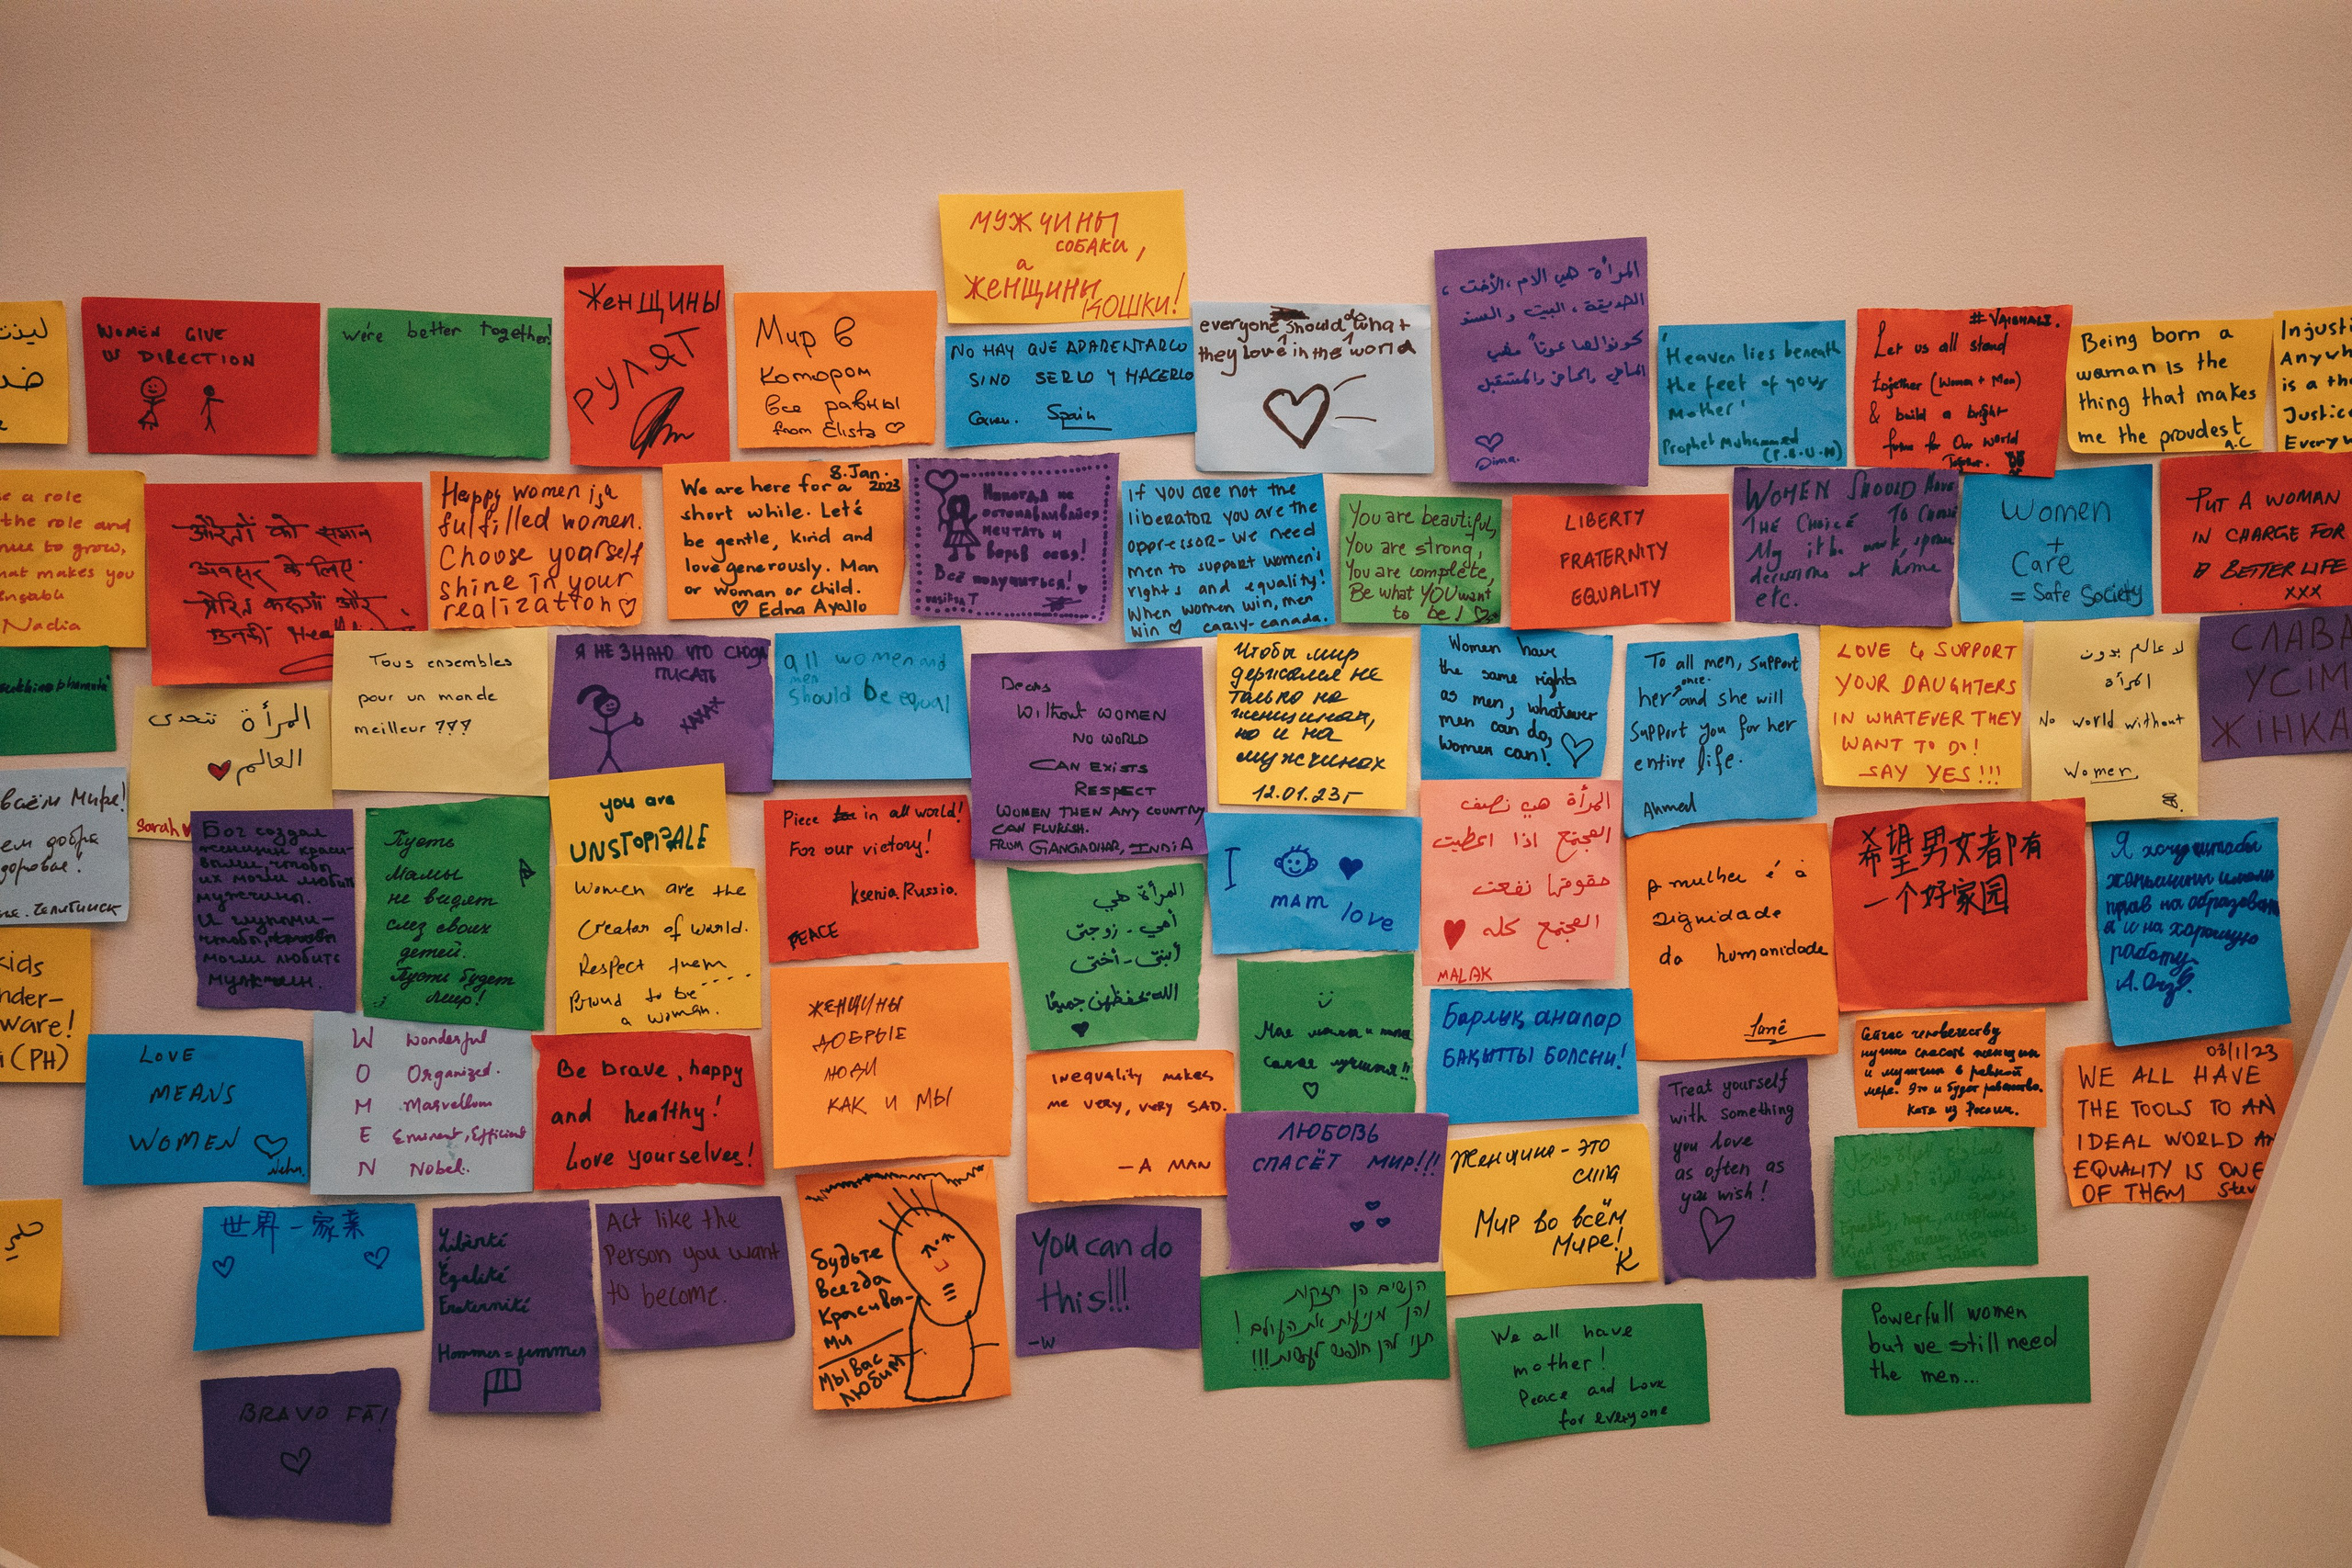 WOMEN GIVE
US DIRECTION
we're better together!
ЖЕНЩИНЫ
РУЛЯТ
Мир в
котором
все равны
from Elista ♡
МУЖЧИНЫ
СОБАКИ,
а
ЖЕНЩИНЫ
КОШКИ!
NO HAY QUE APARENTARLO
SINO SERLO Y HACERLO
Spain
everyone should do what
they love in the world
المرأة هي الام، الأخت،
الصديقة، البيت والسند
كونوا لها عوناً فهي
الماضي والحاضر والمستقبل
Dima.
'Heaven lies beneath
the feet of your
Mother'
Prophet Muhammed
(P.B.U.H)
#VAISHALI.
Let us all stand
together (Women + Men)
& build a bright
for Our World
Together.
Being born a
woman is the
thing that makes
me the proudest
A.C
Injusti
Anywh
is a th
Justice
Everyw
e a role
the role and
nue to grow,
hat makes you
ensable
Nadia
औरतों को समान
अवसर के लिए
प्रेरित करना और
उनकी
Happy women is a
fulfilled women.
Choose yourself
shine in your
realization ♡
8.Jan.
2023
We are here for a
short while. Let's
be gentle, kind and
love generously. Man
or woman or child.
♡ Edna Ayallo
Никогда не
останавливайся
мечтать и
верь в себя!
Всё получится!
If you are not the
liberator you are the
oppressor- We need
men to support women's
rights and equality!
When women win, men
win ♡ carly-canada.
You are beautiful,
You are strong,
You are complete,
Be what YOU want
to be! ♡
LIBERTY
FRATERNITY
EQUALITY
WOMEN SHOULD HAVE
THE CHOICE TO CHOOSE
My it be work, spouse
decisions at home
etc.
Women
+
Care
= Safe Society
PUT A WOMAN
IN CHARGE FOR
A BETTER LIFE
XXX
المرأة تتحدى
العالم
Sarah
Tous ensembles
pour un monde
meilleur ???
Я НЕ ЗНАЮ ЧТО СЮДА
ПИСАТЬ
ХАХАХ
all women and
men
should be equal
Dears
Without WOMEN
NO WORLD
CAN EXISTS
RESPECT
WOMEN THEN ANY COUNTRY
CAN FLURISH.
FROM GANGADHAR, INDIA
Чтобы мир
держался не
только на
женщинах,
но и на
мужчинах
12.01.23г
Women have
the same rights
as men, whatever
men can do,
women can! ♡
To all men, support
her once and she will
support you for her
entire life.
Ahmed
LOVE & SUPPORT
YOUR DAUGHTERS
IN WHATEVER THEY
WANT TO DO!
SAY YES!!!
لا عالم بدون
امرأة
No world without
Women.
СЛАВА
УСІМ
ЖІНКА
всём Мире!
ем добра
доровье!
Бог создал
женщин краси-
выми, чтобы
их могли любить
мужчины.
И глупыми-
чтобы
могли любить
мужчин.
Пусть
Мамы
не видят
слез своих
детей.
Пусть будет
мир!
you are
UNSTOPPABLE
Women are the
Creator of world.
Respect them...
Proud to be
a woman.
Piece in all world!
For our victory!
Ksenia Russia.
PEACE
المرأة هي
أمي - زوجتي
أبنتي - أختي
الله يحفظهن جميعًا
I
mam love
المرأة هي نصف
المجتمع اذا اعطيت
حقوقها نفعت
المجتمع كله
MALAK
A mulher é a
Dignidade
da humanidade
希望男女都有
一个好家园
Я хочу чтобы
женщины имели
прав на образован
а и на хорошую
работу.
kids
nder-
ware!
(PH)
LOVE
MEANS
WOMEN ♡
W Wonderful
O Organized.
M Marvellous
E Eminent, Efficient
N Nobel.
Be brave, happy
and healthy!
Love yourselves!
ЖЕНЩИНЫ
ДОБРЫЕ
ЛЮДИ
КАК И МЫ
Inequality makes
me very, very SAD.
- A MAN
Мае мама и
самае лучшая!!
Барлық аналар
БАҚЫТТЫ БОЛСЫН!
Treat yourself
with something
you love
as often as
you wish!
Сейчас человечеству
нужно спасать женщин
и мужчин в равной
мере. Это и будет равенство.
Катя из России.
03/1/23
WE ALL HAVE
THE TOOLS TO AN
IDEAL WORLD AN
EQUALITY IS ONE
OF THEM Stev
世界一家亲
Liberté
Égalité
Fraternité
Hommes = femmes
Act like the
Person you want
to become.
Будьте
Всегда
Красивы-
ми
Мы Вас
любим
You can do
this!!!
-W
ЛЮБОВЬ
СПАСЁТ МИР!!!
Женщина - это
сила
Мир во всём
Мире!
К
Equality, hope, acceptance
Kind are main Keywords
for Better Future
הנשים הן חזקות
והן מניעות את העולם!
תנו להן חופש לעשות!!!
We all have
mother!
Peace and Love
for everyone
Powerfull women
but we still need
the men...
BRAVO FĂ!